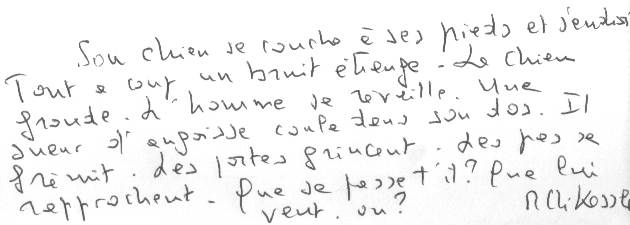 Son chien se couche à ses pieds et s'endort
Tout à coup un bruit étrange - Le chien
gronde. L'homme se réveille. Une
sueur d'angoisse coule dans son dos. Il
frémit. Les portes grincent. Des pas se
rapprochent - Que se passe t'il? Que lui
veut. on?